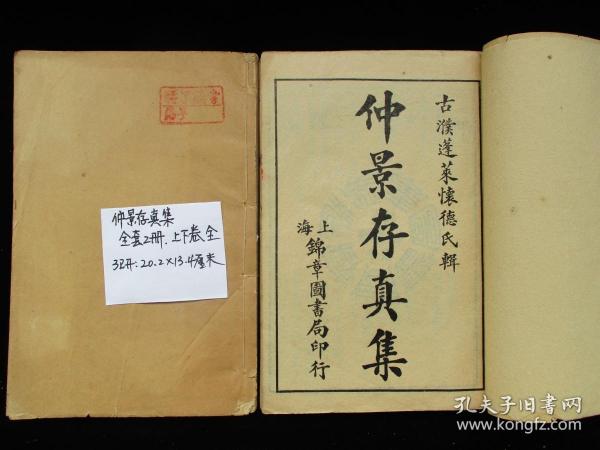 仲景存真集
全套2册.上下卷全
32开:20.2×13.4厘米
古濮蓬萊懷德氏輯
仲景存真集
上海錦章圖書局印行
孔夫子旧书网
www.kongfz.com